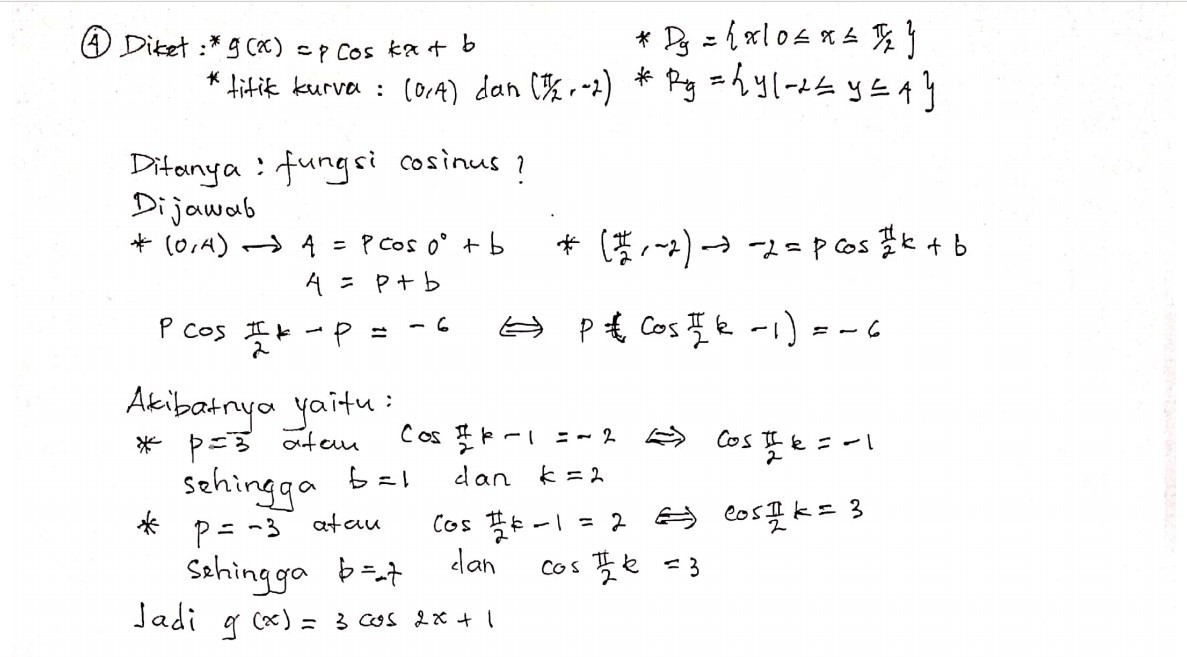 ④ Diket : * g(x) = p cos kx + b * Dg = {x|0 ≤ x ≤ π/2}
* titik kurva : (0,4) dan (π/2, -2) * Rg = {y|-2 ≤ y ≤ 4}
Ditanya : fungsi cosinus ?
Dijawab
* (0,4) → 4 = p cos 0° + b * (π/2, -2) → -2 = p cos π/2 k + b
4 = p + b
p cos π/2 k - p = -6 ⇔ p ( cos π/2 k - 1) = -6
Akibatnya yaitu :
* p = 3 atau cos π/2 k - 1 = -2 ⇔ cos π/2 k = -1
sehingga b = 1 dan k = 2
* p = -3 atau cos π/2 k - 1 = 2 ⇔ cos π/2 k = 3
Sehingga b = 7 dan cos π/2 k = 3
Jadi g(x) = 3 cos 2x + 1